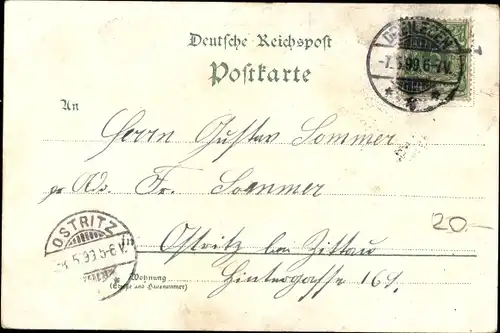 Deutsche Reichspost
Postkarte
-7.5.99.6-7V.
An
Herrn Gustav Sommer
pr Ad. Fr. Sommer
OSTRITZ
5.99.5-6V.
20.-
in
Ostritz bei Zittau
Wohnung
(Straße und Hausnummer)
Hintergasse 161.